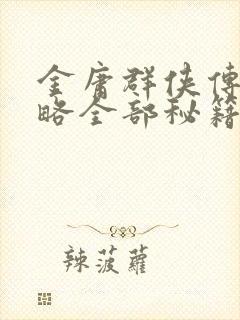 金庸群侠傳
略全部秘籍
辣菠蘿